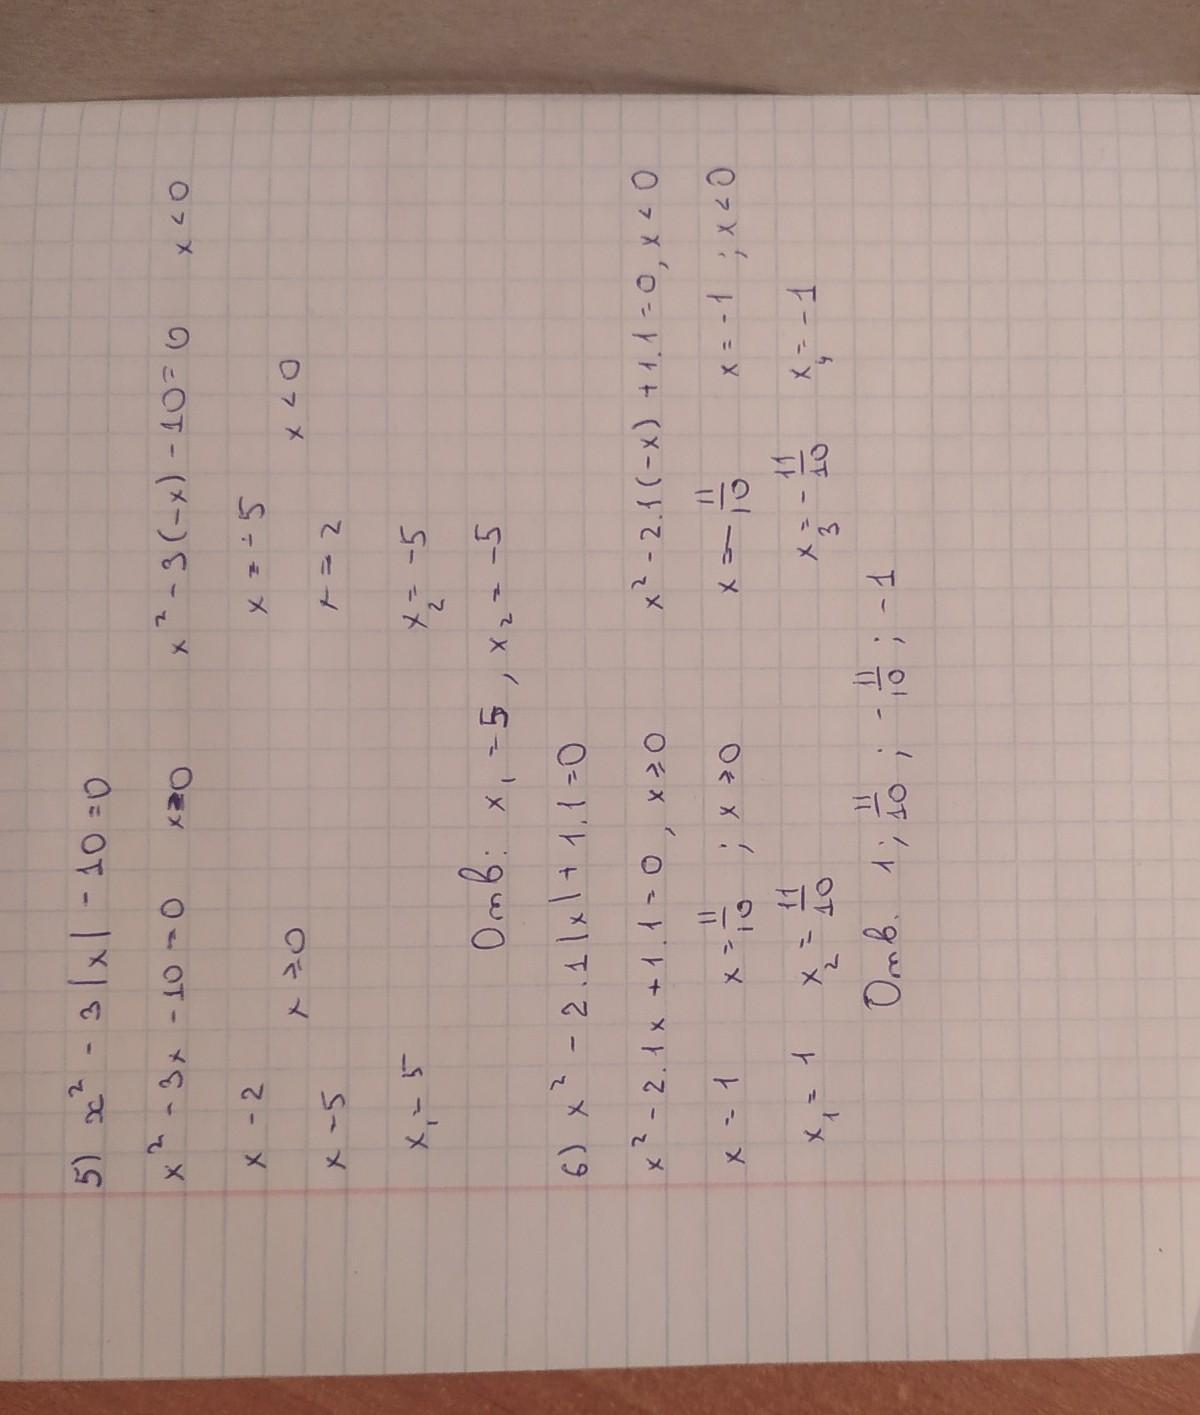 5) x² - 3|x| - 10 = 0
x² - 3x - 10 = 0 x≥0 x² - 3(-x) - 10 = 0 x < 0
x - 2 x = -5
x ≥ 0 x < 0
x - 5 x = 2
x₁ - 5 x₂ = -5
Отв: x₁ - 5, x₂ = -5
6) x² - 2.1|x| + 1.1 = 0
x² - 2.1x + 1.1 = 0, x ≥ 0 x² - 2.1(-x) + 1.1 = 0, x < 0
x = 1 x = 11/10 ; x ≥ 0 x = - 11/10 x = -1 ; x < 0
x₁ = 1 x₂ = 11/10 x₃ = - 11/10 x₄ = -1
Отв. 1; 11/10 ; - 11/10 ; -1